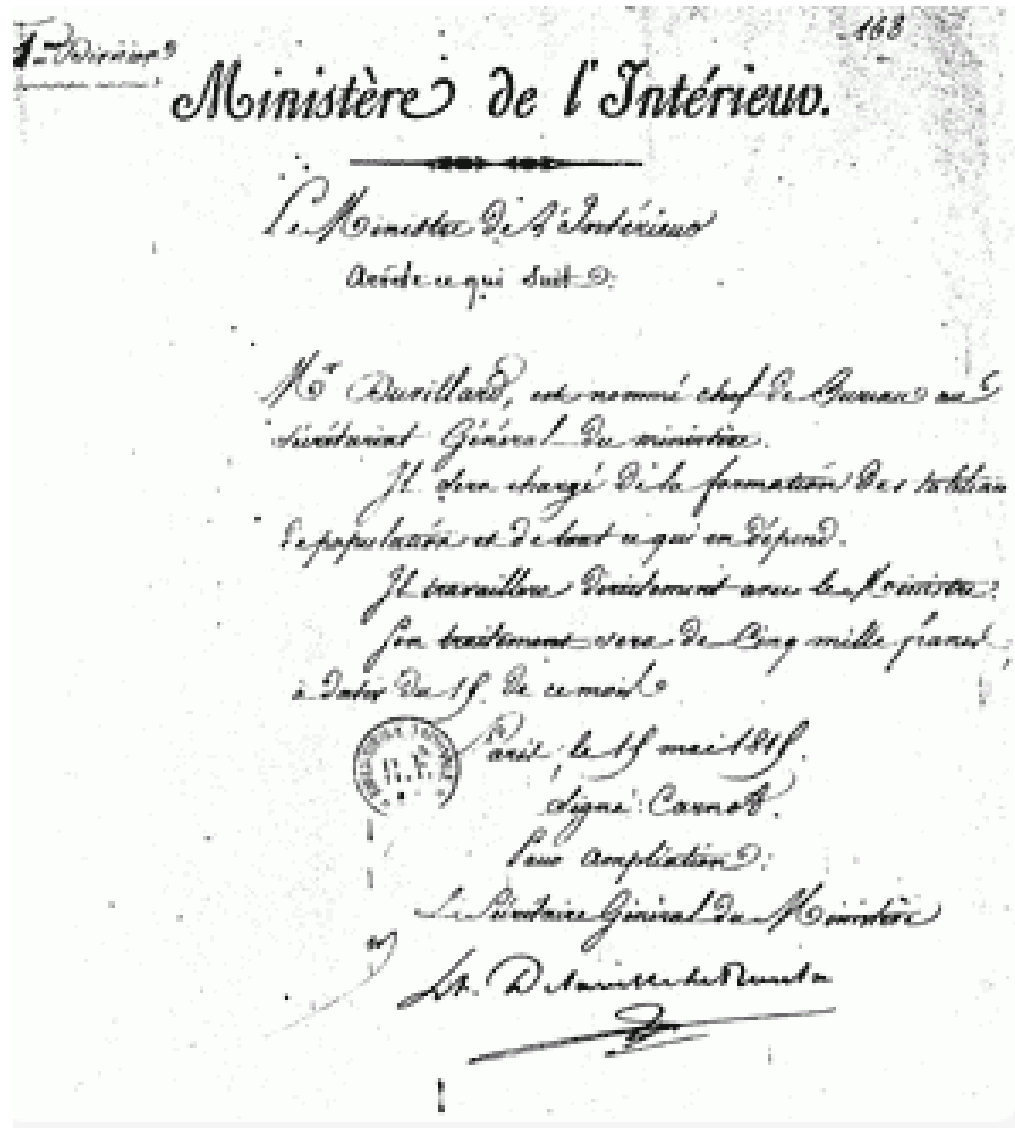 168
Ministère de l'Intérieur.
Le Ministre de l'Intérieur
Arrête ce qui suit :
Mr Duvillard, est nommé chef de Bureau au
Secrétariat Général du ministère.
Il sera chargé de la formation des tableaux
de population et de tout ce qui en dépend.
Il travaillera directement avec le Ministre.
Son traitement sera de Cinq mille francs,
à dater du 15 de ce mois.
Paris, le 15 mai 1815.
Signé : Carnot.
Pour ampliation :
Le Secrétaire Général du Ministère